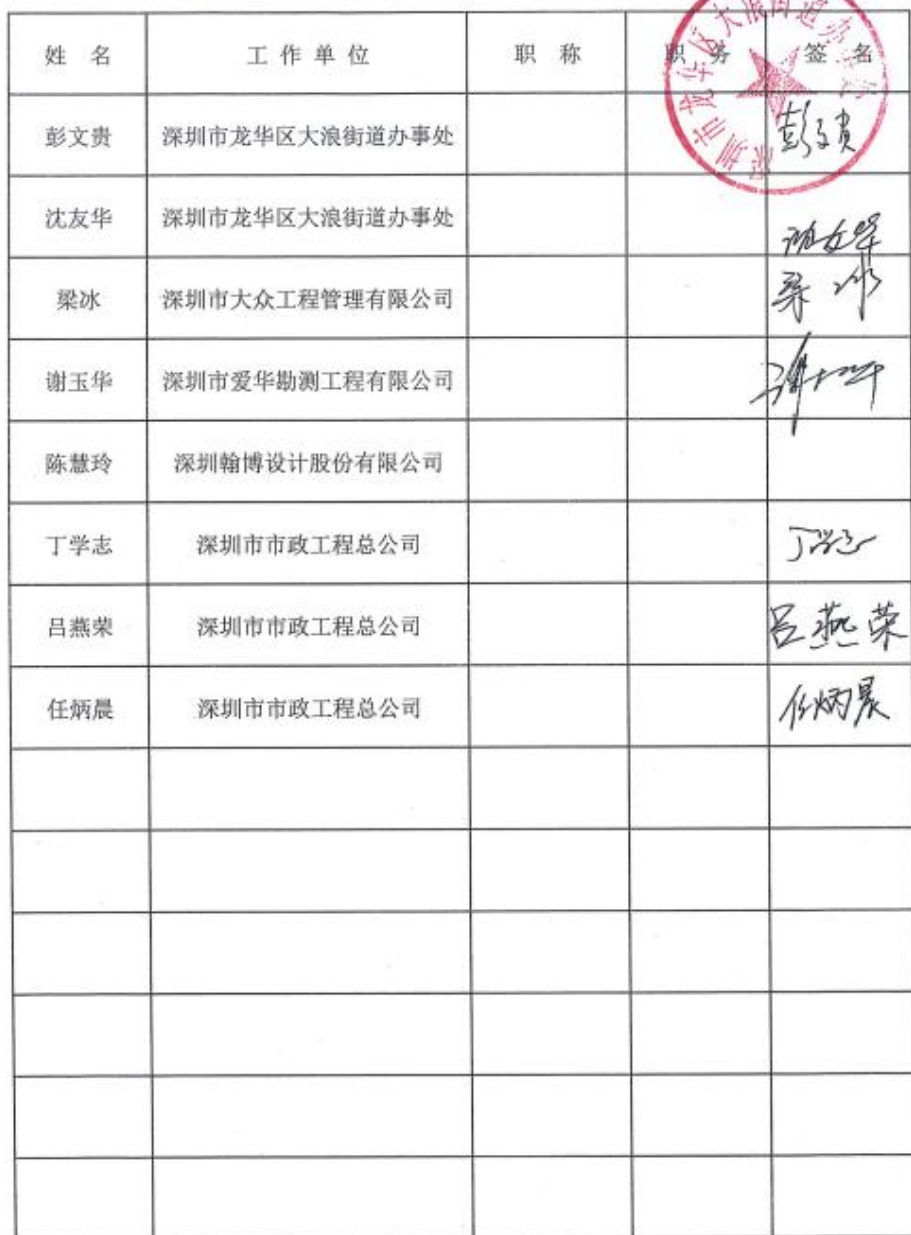 深圳市龙华区大浪街道办事处
姓 名 工 作 单 位 职 称 职 务 签 名
彭文贵 深圳市龙华区大浪街道办事处 彭文贵
沈友华 深圳市龙华区大浪街道办事处 沈友华
梁冰 深圳市大众工程管理有限公司 梁冰
谢玉华 深圳市爱华勘测工程有限公司 谢玉华
陈慧玲 深圳翰博设计股份有限公司
丁学志 深圳市市政工程总公司 丁学志
吕燕荣 深圳市市政工程总公司 吕燕荣
任炳晨 深圳市市政工程总公司 任炳晨